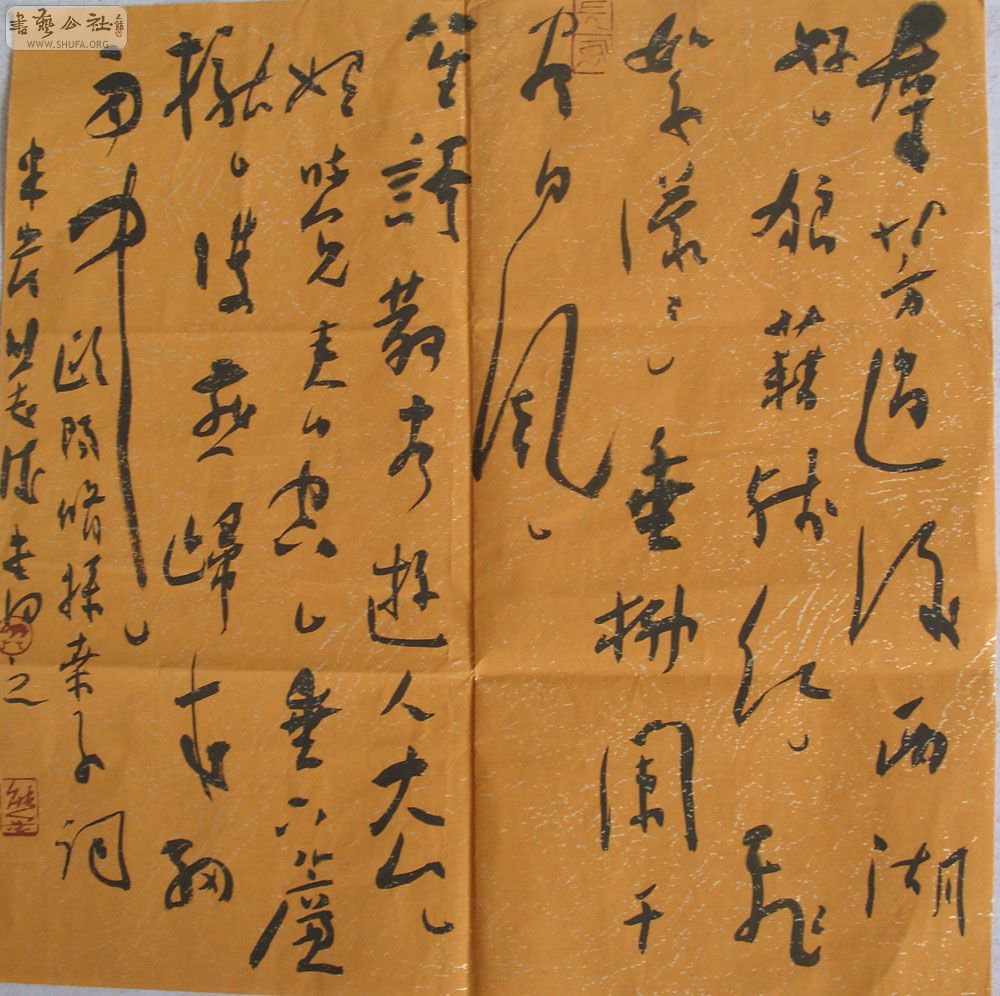 書藝公社
WWW.SHUFA.ORG
群芳過後西湖
好狼藉殘紅飛
絮濛〻垂柳闌干
尽日風
笙歌散尽遊人去
始覺春空垂下簾
櫳雙燕歸来細
雨中
歐陽修採桑子詞
書
之